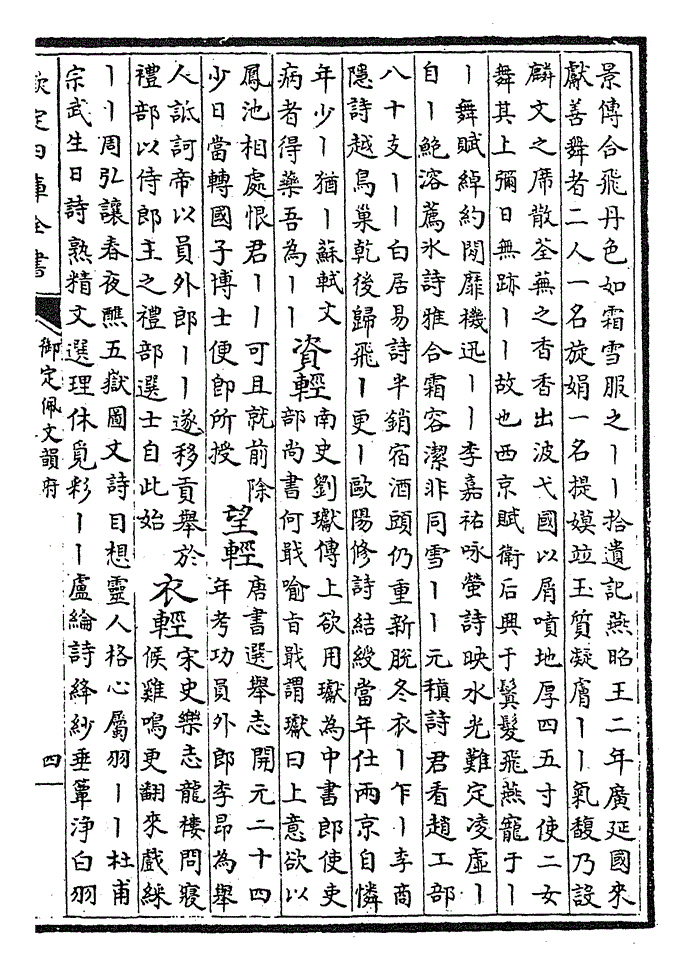 景傳合飛丹色如霜雪服之丨丨拾遺記燕昭王二年廣延國來
獻善舞者二人一名旋娟一名提嫫竝玉質凝膚丨丨氣馥乃設
麟文之席散荃蕪之香香出波弋國以屑噴地厚四五寸使二女
舞其上彌日無跡丨丨故也西京賦衛后興于鬒髮飛燕寵于丨
丨舞賦綽約閑靡機迅丨丨李嘉祐咏螢詩映水光難定凌虛丨
自丨鮑溶薦氷詩雅合霜容潔非同雪丨丨元稹詩君看趙工部
八十支丨丨白居易詩半銷宿酒頭仍重新脫冬衣丨乍丨李商
隱詩越鳥巢乾後歸飛丨更丨歐陽修詩結綬當年仕兩京自憐
年少丨猶丨蘇軾文
病者得藥吾為丨丨
資輕
南史劉瓛傳上欲用瓛為中書郎使吏
部尚書何戢喻旨戢謂瓛曰上意欲以
鳳池相處恨君丨丨可且就前除
少日當轉國子博士便即所授
望輕
唐書選舉志開元二十四
年考功員外郎李昂為舉
人詆訶帝以員外郎丨丨遂移貢舉於
禮部以侍郎主之禮部選士自此始
衣輕
宋史樂志龍樓問寢
候雞鳴更翻來戲綵
丨丨周弘讓春夜醮五嶽圖文詩目想靈人格心屬羽丨丨杜甫
宗武生日詩熟精文選理休覓彩丨丨盧綸詩絳紗垂簟淨白羽
欽定四庫全書
御定佩文韻府
四